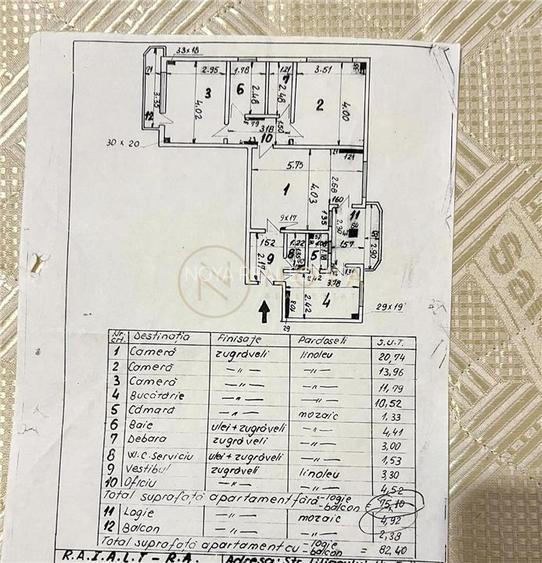 33 x 18
2.95
1.78
1.21
3.51
21
3.35
12
3
4.02
6
2.48
7
2.48
2
4.00
3.18
10
30 x 20
5.75
1.21
1
4.03
2.68
160
11
1.35
9x17
2.90
1.52
1.22
1.57
9
2.19
8
5
2.42
3.78
2.42
4
29
29x19
NOVA
Nr. crt. Destinatia Finisaje Pardoseli S.U.T.
1 Cameră zugrăveli linoleu 20,74
2 Cameră —„— —„— 13,96
3 Cameră —„— —„— 11,79
4 Bucătărie —„— —„— 10,52
5 Cămară —„— mozaic 1,33
6 Baie ulei+zugrăveli —„— 4,41
7 Debara zugrăveli —„— 3,00
8 W.C. Serviciu ulei+zugrăveli —„— 1,53
9 Vestibul zugrăveli linoleu 3,30
10 Oficiu —„— —„— 4,52
Total suprafață apartament fără -logie -balcon = 75,10
11 Logie —„— mozaic 4,92
12 Balcon —„— —„— 2,38
Total suprafață apartament cu -logie -balcon = 82,40
R.A.I.A.L.T - R.A. Adresa: Str.